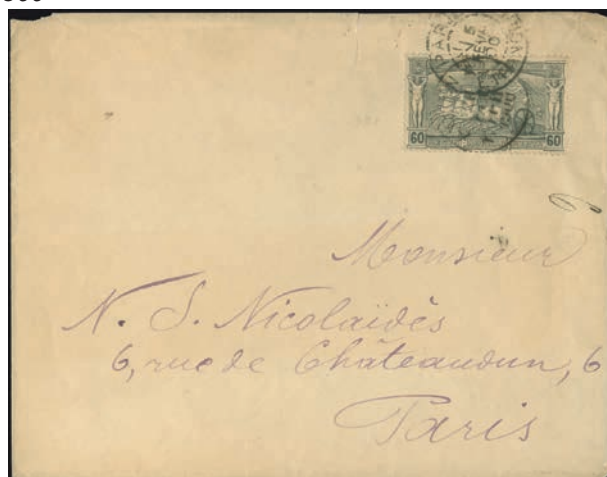 60 60
Monsieur
N. S. Nicolaïdès
6, rue de Châteaudun, 6
Paris